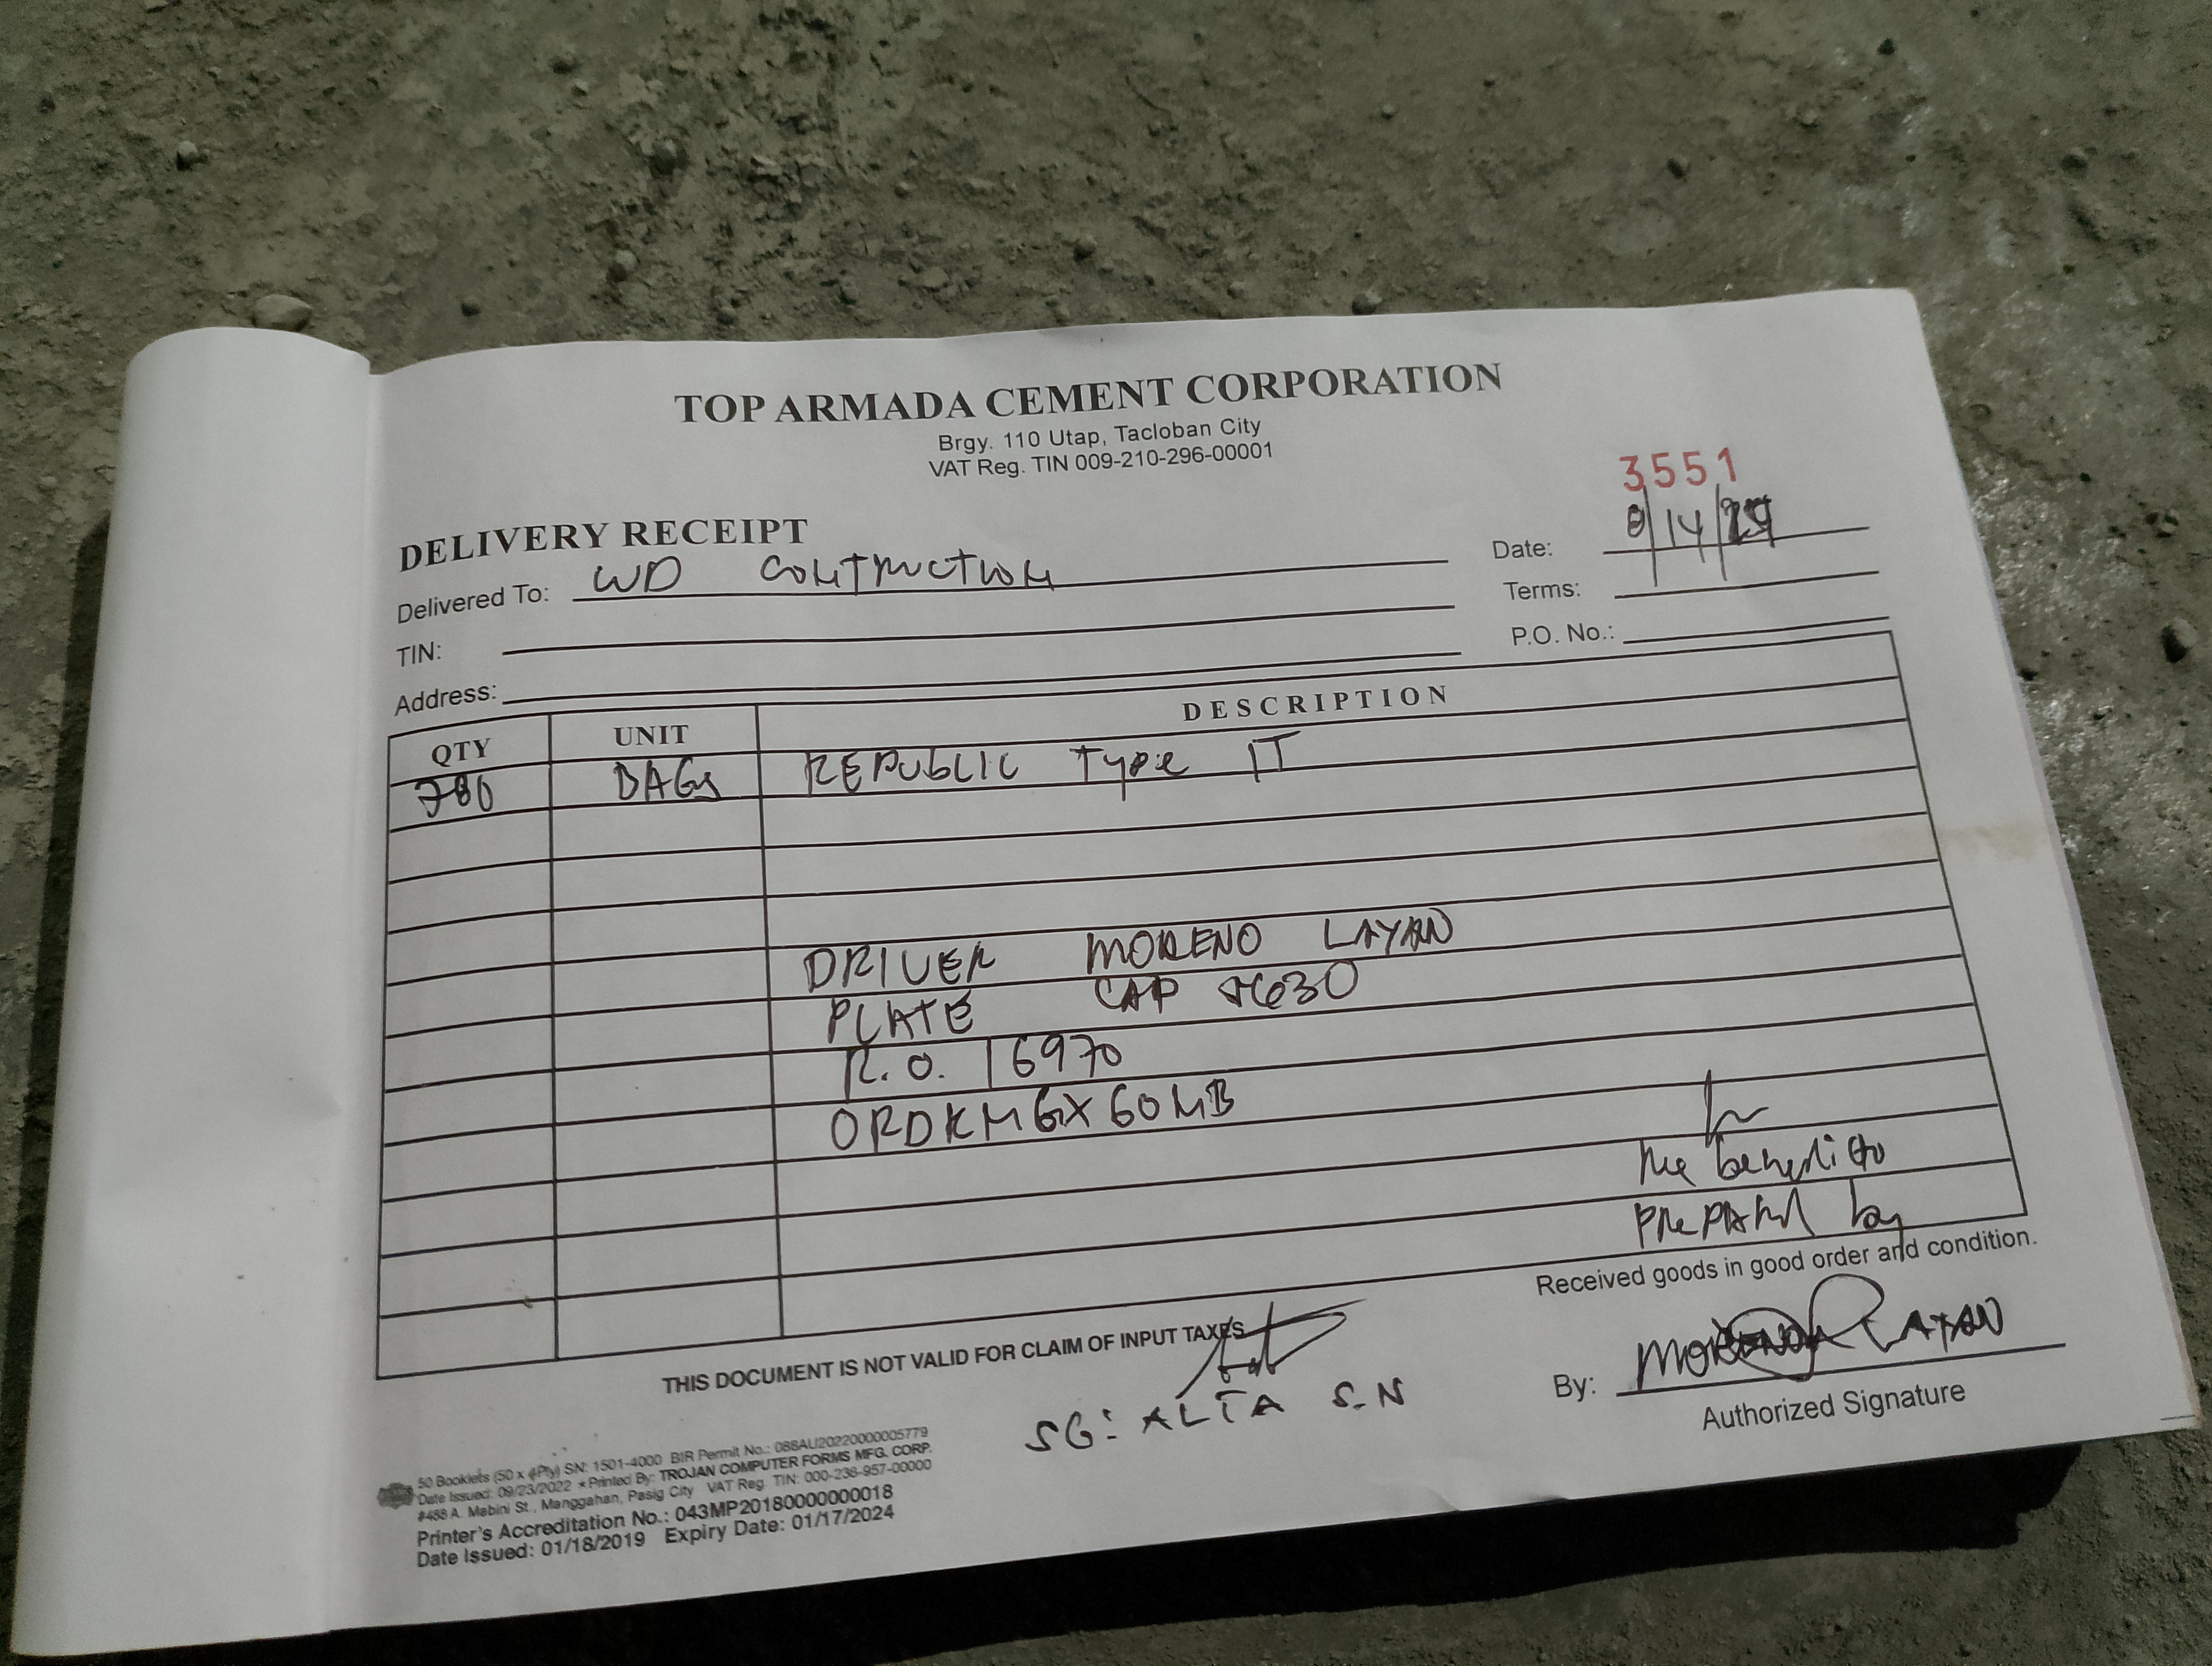 TOP ARMADA CEMENT CORPORATION
Brgy. 110 Utap, Tacloban City
VAT Reg. TIN 009-210-296-00001
3551
DELIVERY RECEIPT
Date: 8/14/24
Delivered To: WD CONTRUCTION
Terms:
TIN:
P.O. No.:
Address:
QTY UNIT DESCRIPTION
780 BAGS REPUBLIC Type IT
DRIVER MORENO LAYAN
PLATE CAP
R.O. 16970
ORDKM6X60MB
benedicto
PREPARED by
Received goods in good order and condition.
THIS DOCUMENT IS NOT VALID FOR CLAIM OF INPUT TAXES
By: MORENO LAYAN
Authorized Signature
SG: ALTA S.N
50 Booklets (50 x 4Ply) SN: 1501-4000 BIR Permit No.: 088AU20220000005779
Date Issued: 09/23/2022 * Printed By: TROJAN COMPUTER FORMS MFG. CORP.
#488 A. Mabini St., Manggahan, Pasig City VAT Reg. TIN: 000-236-957-00000
Printer's Accreditation No.: 043MP20180000000018
Date Issued: 01/18/2019 Expiry Date: 01/17/2024